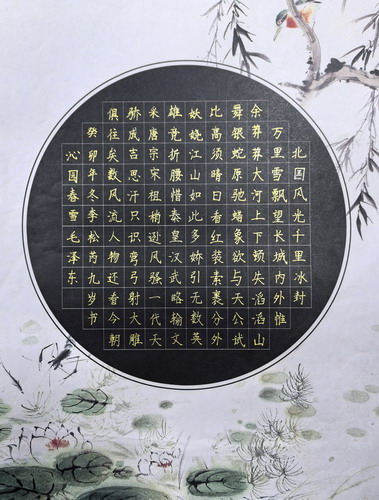 北国风光千里冰封
万里雪飘望长城内外惟
余莽莽大河上下顿失滔滔山
舞银蛇原驰蜡象欲与天公试
比高须晴日看红装素裹分外
妖娆江山如此多娇引无数英
雄竞折腰惜秦皇汉武略输文
采唐宗宋祖稍逊风骚一代天
骄成吉思汗只识弯弓射大雕
俱往矣数风流人物还看今朝
癸卯年冬李松芮九岁书
沁园春雪毛泽东